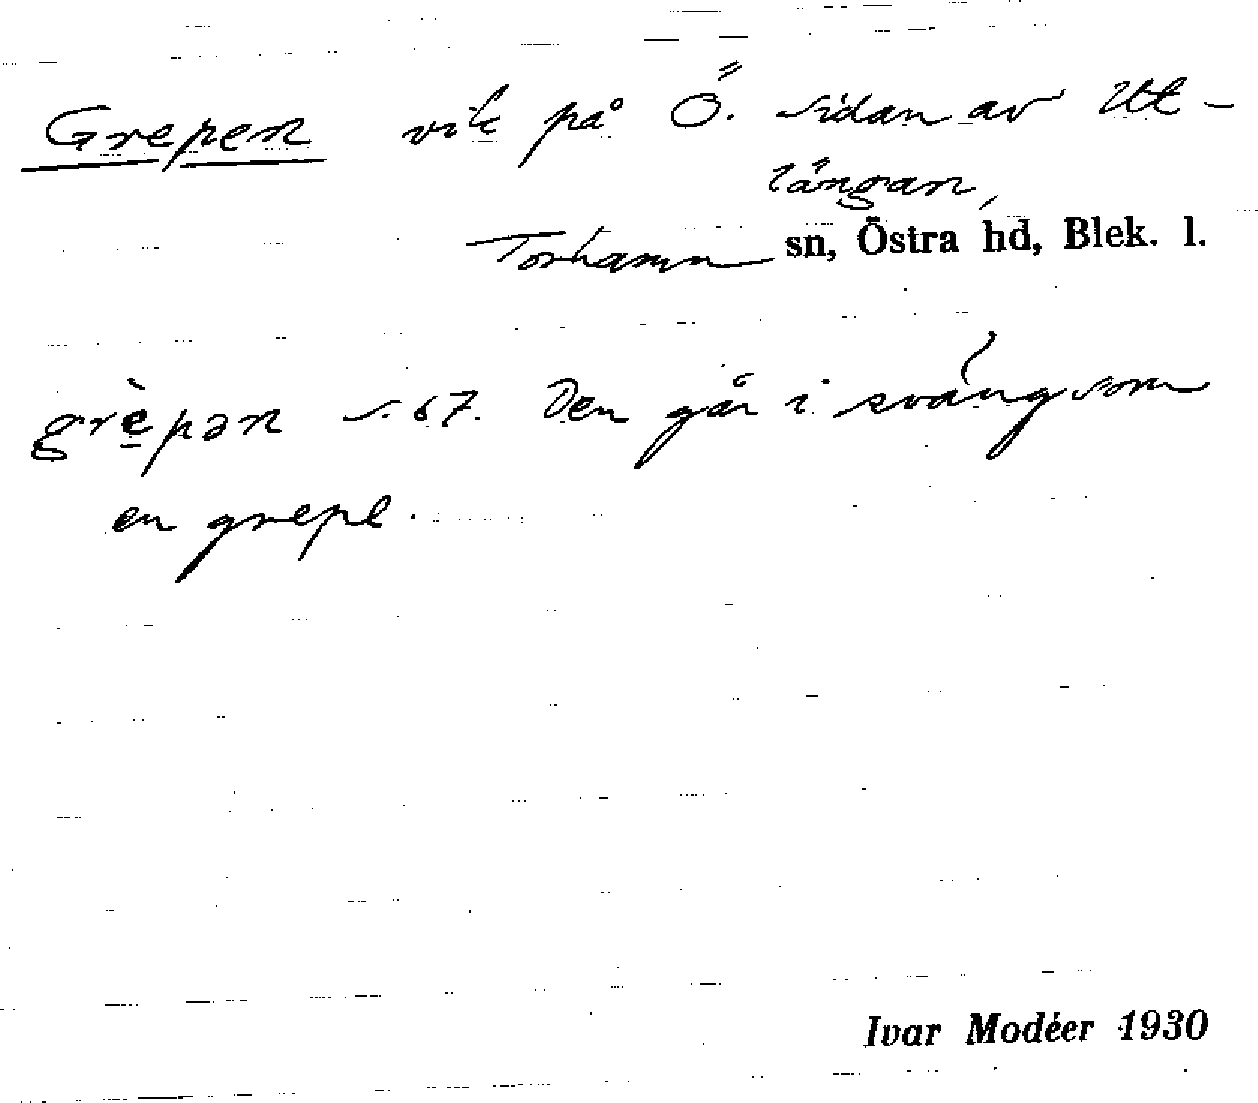 Grepen vik på Ö. sidan av Ut-
långan,
Torhamn sn, Östra hd, Blek. l.
grè̱pən s. 67. Den går i sväng som
en grepe.
Ivar Modéer 1930